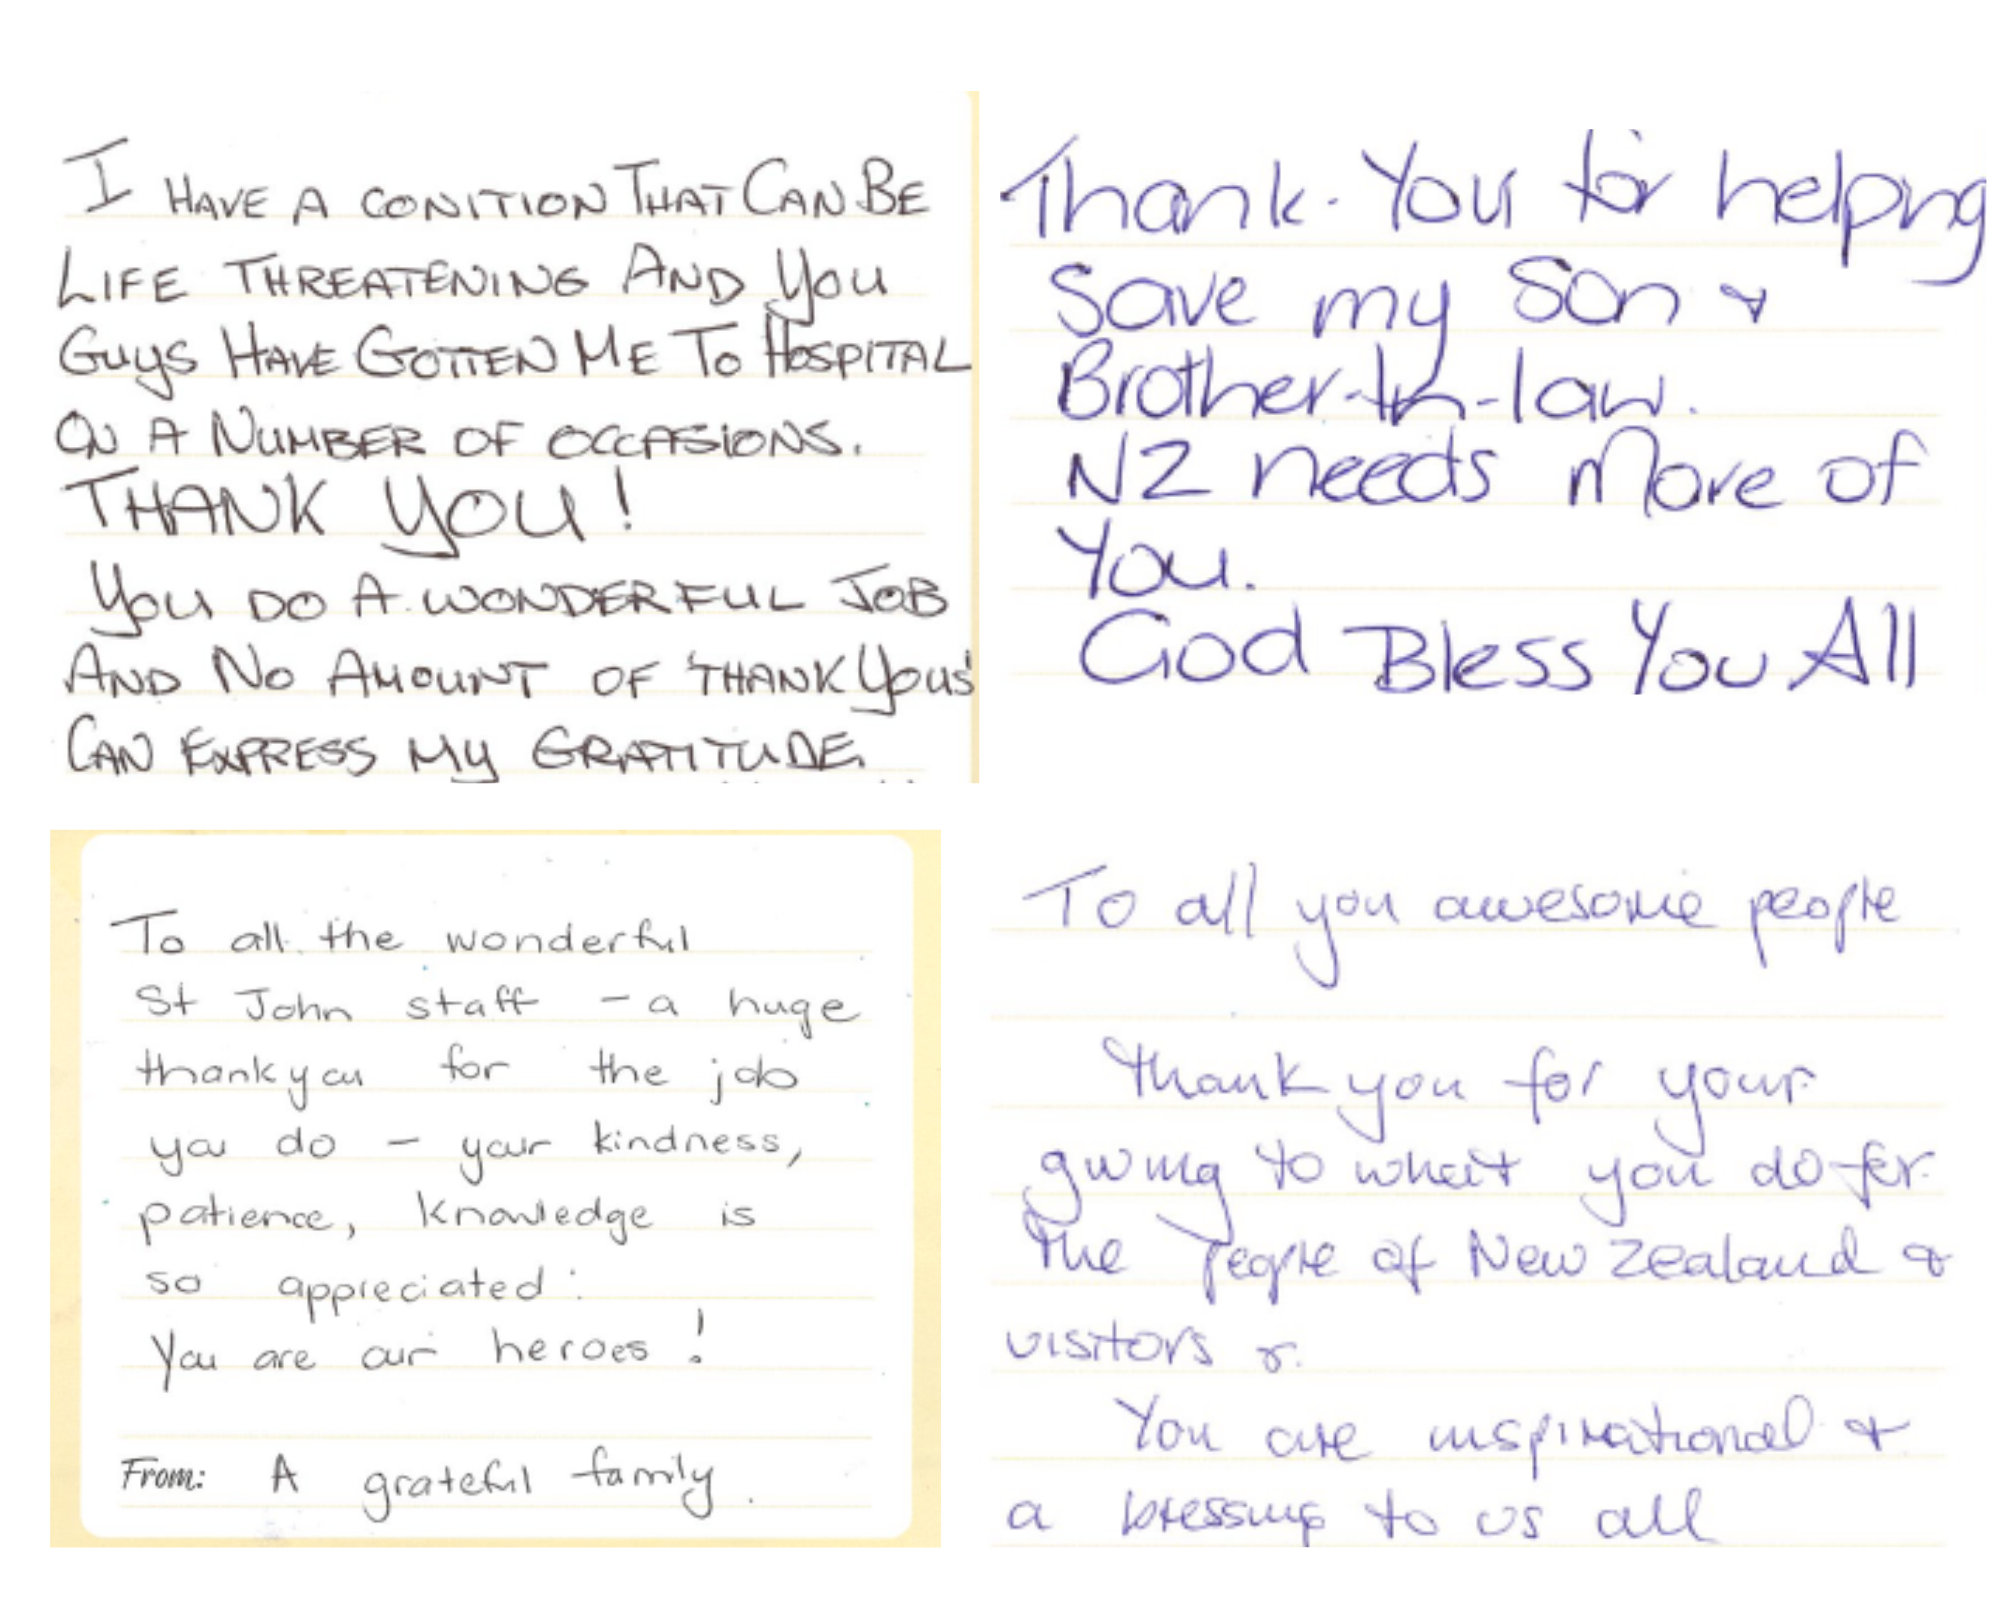 I HAVE A CONITION THAT CAN BE
LIFE THREATENING AND YOU
GUYS HAVE GOTTEN ME TO HOSPITAL
ON A NUMBER OF OCCASIONS.
THANK YOU!
YOU DO A WONDERFUL JOB
AND NO AMOUNT OF 'THANK YOUS'
CAN EXPRESS MY GRATITUDE.
Thank You for helping
Save my Son &
Brother-In-law.
NZ needs More of
You.
God Bless You All
To all the wonderful
St John staff - a huge
thankyou for the job
you do - your kindness,
patience, knowledge is
so appreciated.
You are our heroes!
From: A grateful family.
To all you awesome people
Thank you for your
giving to what you do for
the people of New Zealand &
visitors &
You are inspirational &
a blessing to us all